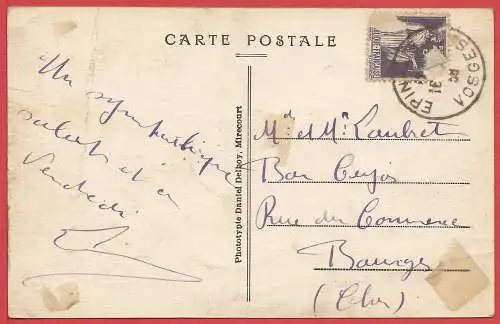 CARTE POSTALE
Un sympathique
salut et à
Vendredi
Phototypie Daniel Delboy, Mirecourt
EPINAL VOSGES
Md et Mr Laubret
Bar
Rue du Commerce
Bourges
(Cher)